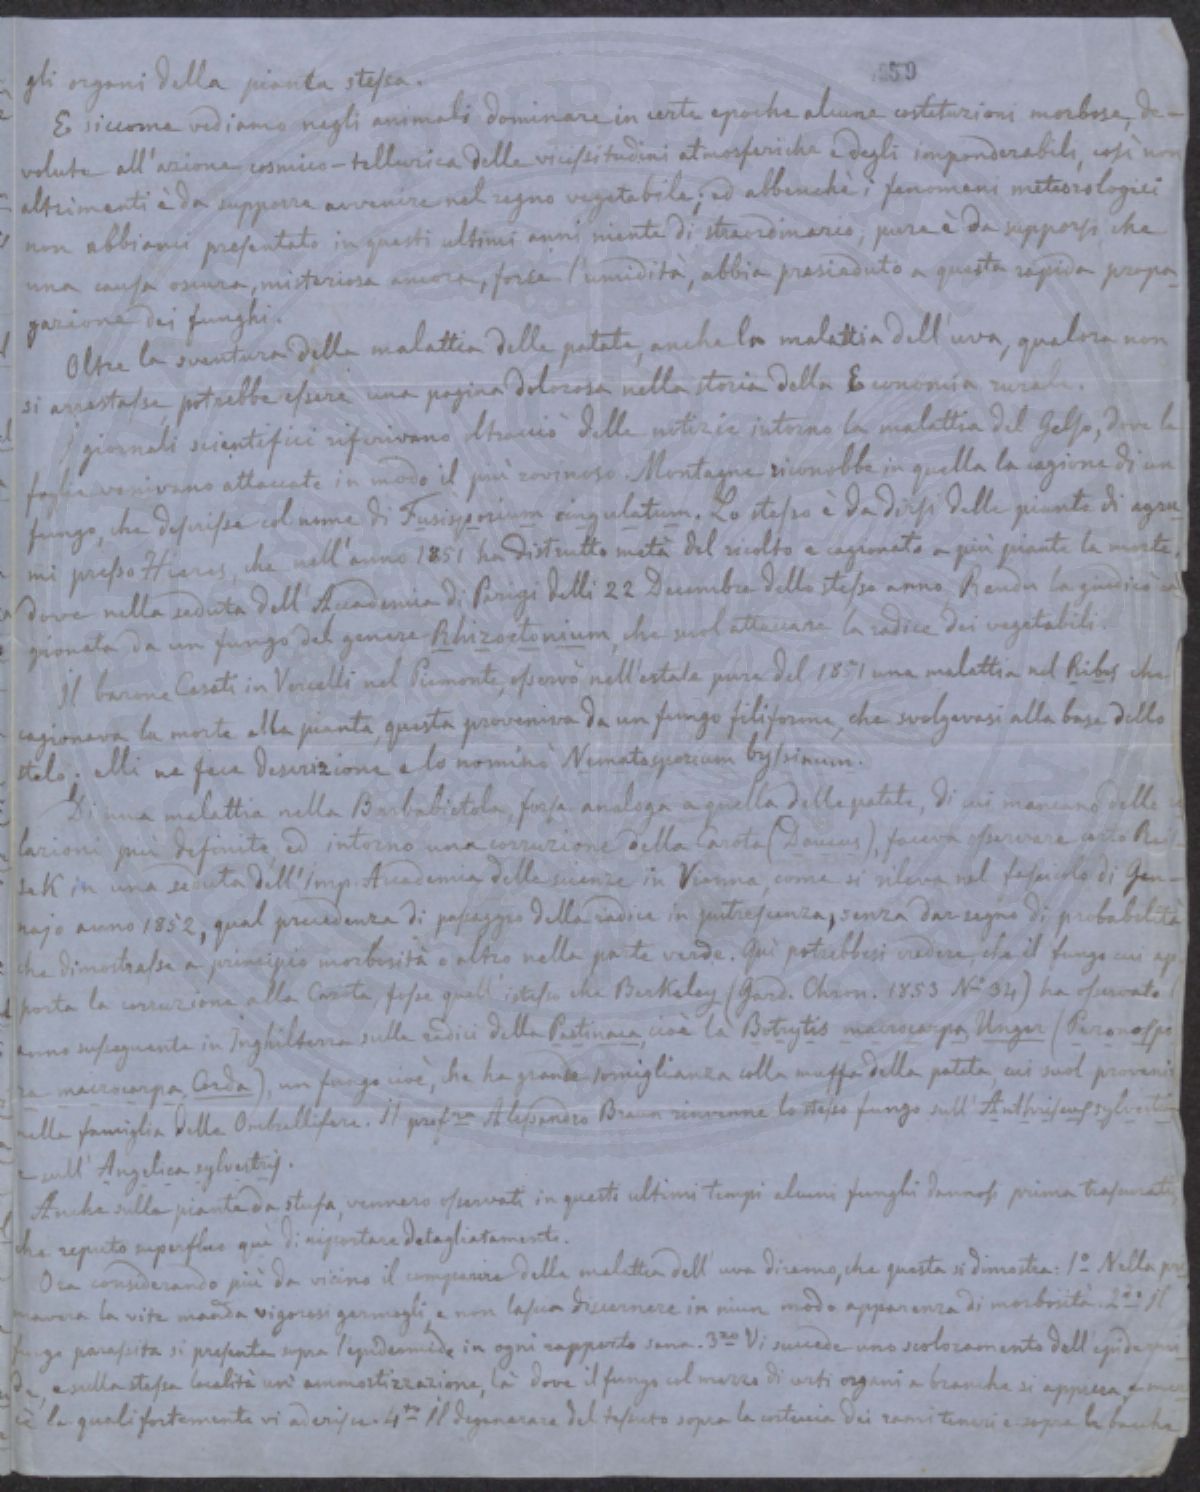 gli organi della pianta stessa.
59
E siccome vediamo negli animali dominare in certe epoche alcune costituzioni morbose, de-
volute all'azione cosmico-tellurica delle vicissitudini atmosferiche e degli imponderabili, così non
altrimenti è da supporre avvenire nel regno vegetabile; ed abbenchè i fenomeni meteorologici
non abbiano presentato in questi ultimi anni niente di straordinario, pure è da supporsi che
una causa oscura, misteriosa ancora, forse l'umidità, abbia presieduto a questa rapida propa-
gazione dei funghi.
Oltre la sventura della malattia delle patate, anche la malattia dell'uva, qualora non
si arrestasse, potrebbe essere una pagina dolorosa nella storia della Economia rurale.
I giornali scientifici riferivano oltracciò delle notizie intorno la malattia del Gelso, dove le
foglie venivano attaccate in modo il più rovinoso. Montagne riconobbe in quella la cagione di un
fungo, che descrisse col nome di Fusisporium cingulatum. Lo stesso è da dirsi delle piante di agru-
mi presso Hieres, che nell'anno 1851 ha distrutto metà del ricolto e cagionato a più piante la morte,
dove nella seduta dell'Accademia di Parigi delli 22 Decembre dello stesso anno Rendu la giudicò ca-
gionata da un fungo del genere Rhizoctonium, che suol attaccare la radice dei vegetabili.
Il barone Cesati in Vercelli nel Piemonte, osservò nell'estate pure del 1851 una malattia nel Ribes che
cagionava la morte alla pianta, questa proveniva da un fungo filiforme, che svolgevasi alla base dello
stelo: elli ne fece descrizione e lo nominò Nematosporium byssinum.
Di una malattia nella Barbabietola, forse analoga a quella delle patate, di cui mancano delle re-
lazioni più definite, ed intorno una corruzione della Carota (Daucus), faceva osservare certo Reis-
sek in una seduta dell'Imp. Accademia delle scienze in Vienna, come si rileva nel fascicolo di Gen-
najo anno 1852, qual precedenza di passaggio della radice in putrescenza, senza dar segno di probabilità
che dimostrasse a principio morbosità o altro nella parte verde. Quì potrebbesi credere, che il fungo cui ap-
porta la corruzione alla Carota, fosse quell'istesso che Berkeley (Gard. Chron. 1853 Nº 34) ha osservato l'
anno susseguente in Inghilterra sulle radici della Pastinaca, cioè la Botrytis macrocarpa Unger (Peronospo-
ra macrocarpa Corda), un fungo cioè, che ha grande somiglianza colla muffa della patata, cui suol provenir
nella famiglia delle Ombrellifere. Il profre Alessandro Braun rinvenne lo stesso fungo sull'Anthriscus sylvestris
e sull'Angelica sylvestris.
Anche sulle piante da stufa, vennero osservati in questi ultimi tempi alcuni funghi dannosi prima trascurati,
che reputo superfluo quì di riportare detagliatamente.
Ora considerando più da vicino il comparire della malattia dell'uva diremo, che questa si dimostra: 1º Nella pri-
mavera la vite manda vigorosi germogli, e non lascia discernere in niun modo apparenza di morbosità. 2do Il
fungo parassita si presenta sopra l'epidermide in ogni rapporto sana. 3zo Vi succede uno scoloramento dell'epidermi-
de, e sulla stessa località un'ammortizzazione, là dove il fungo col mezzo di certi organi a branche si appicca,
la quali fortemente vi aderisce. 4to Il degenerare del tessuto sopra la corteccia dei rami teneri e sopra le bacche